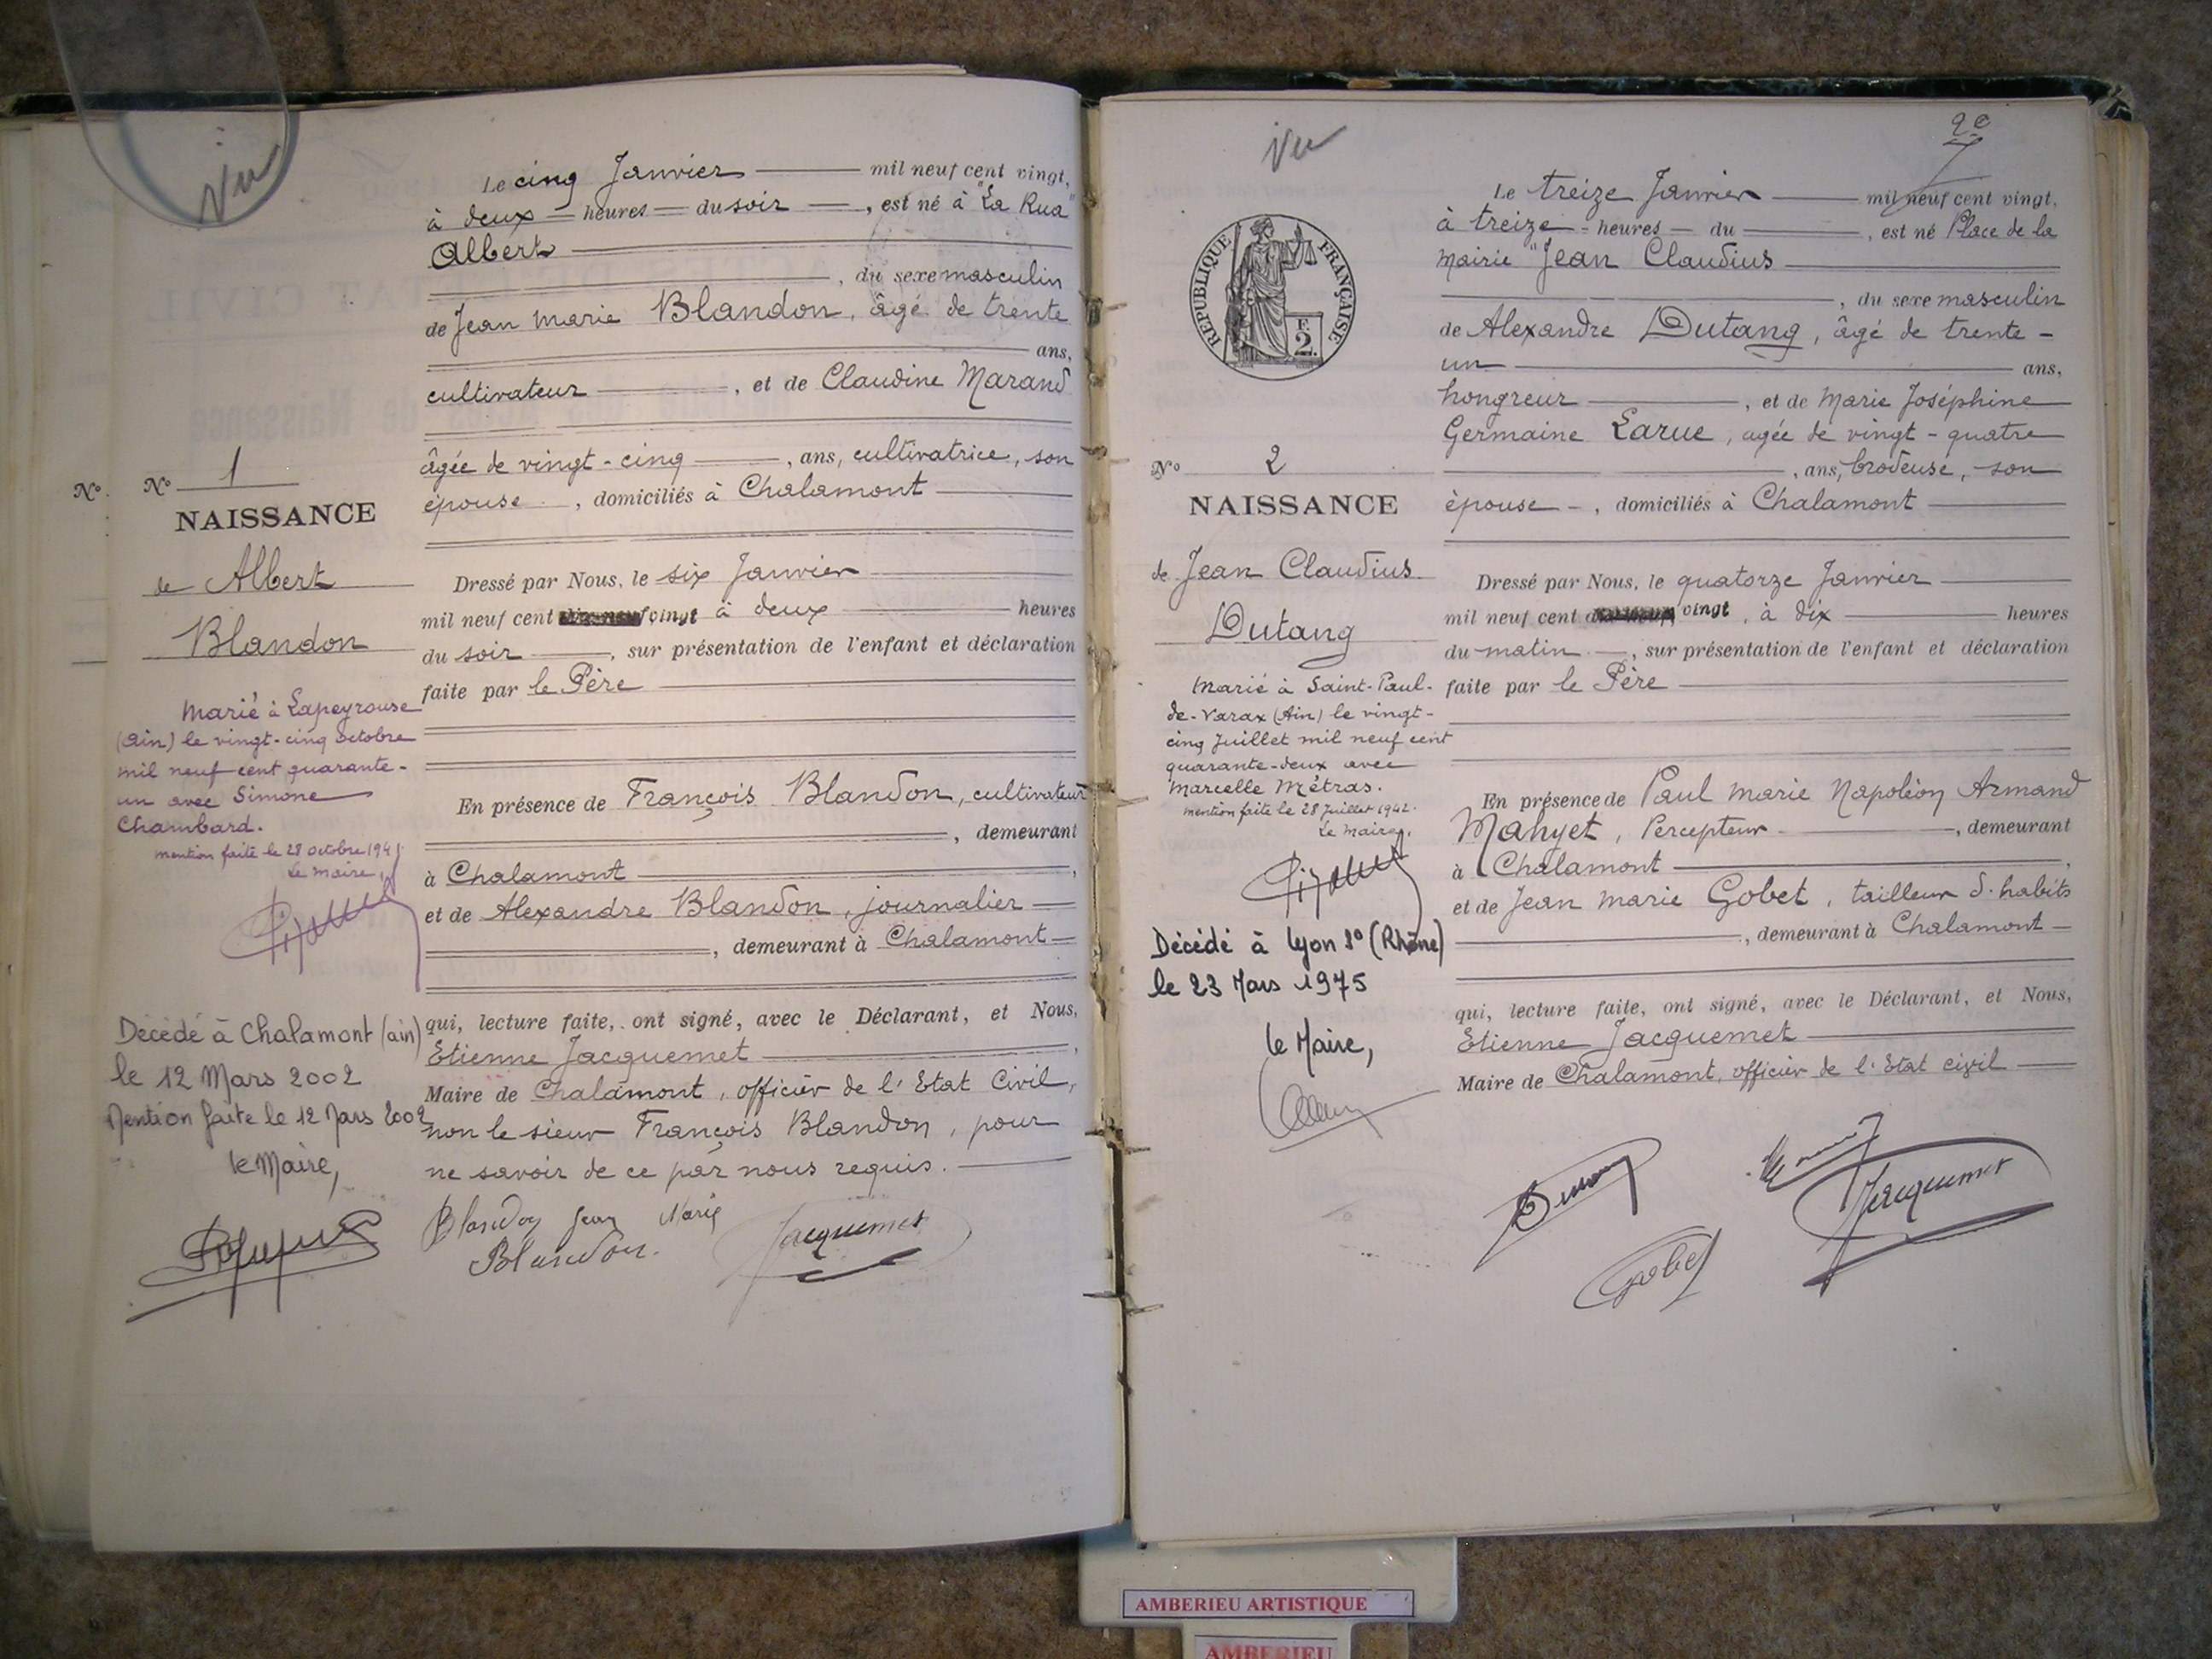 Vu
Le cinq Janvier mil neuf cent vingt,
à deux heures du soir, est né à "La Rua"
Albert
, du sexe masculin
de Jean Marie Blandon, âgé de trente
ans,
cultivateur, et de Claudine Marand
âgée de vingt-cinq, ans, cultivatrice, son
épouse, domiciliés à Chalamont
Dressé par Nous, le six Janvier
mil neuf cent vingt à deux heures
du soir, sur présentation de l'enfant et déclaration
faite par le Père
En présence de François Blandon, cultivateur
, demeurant
à Chalamont,
et de Alexandre Blandon, journalier
, demeurant à Chalamont
qui, lecture faite, ont signé, avec le Déclarant, et Nous,
Etienne Jacquemet,
Maire de Chalamont, officier de l'Etat Civil,
non le sieur François Blandon, pour
ne savoir de ce par nous requis.
Blandon Jean Marie
Blandon.
Jacquemet
Nº
Nº 1
NAISSANCE
de Albert
Blandon
Marié à Lapeyrouse
(Ain) le vingt-cinq octobre
mil neuf cent quarante-
un avec Simone
Chambard.
mention faite le 28 octobre 1941
Le Maire,
Décédé à Chalamont (ain)
le 12 Mars 2002
Mention faite le 12 Mars 2002
le Maire,
Vu
2e
REPUBLIQUE FRANÇAISE
F.
2.
Le treize Janvier mil neuf cent vingt,
à treize heures du, est né Place de la
Mairie "Jean Claudius
, du sexe masculin
de Alexandre Dutang, âgé de trente-
un ans,
hongreur, et de Marie Joséphine
Germaine Larue, agée de vingt-quatre
, ans, brodeuse, son
épouse -, domiciliés à Chalamont
Dressé par Nous, le quatorze Janvier
mil neuf cent vingt, à dix heures
du matin, sur présentation de l'enfant et déclaration
faite par le Père
En présence de Paul Marie Napoléon Armand
Mahyet, Percepteur, demeurant
à Chalamont,
et de Jean Marie Gobet, tailleur d'habits
, demeurant à Chalamont
qui, lecture faite, ont signé, avec le Déclarant, et Nous,
Etienne Jacquemet
Maire de Chalamont, officier de l'Etat civil
Gobet
Jacquemet
Nº 2
NAISSANCE
de Jean Claudius
Dutang
Marié à Saint-Paul-
de-Varax (Ain) le vingt-
cinq Juillet mil neuf cent
quarante-deux avec
Marcelle Métras.
mention faite le 28 Juillet 1942.
Le Maire,
Décédé à Lyon 8º (Rhône)
le 23 Mars 1975
le Maire,
AMBERIEU ARTISTIQUE
AMBERIEU